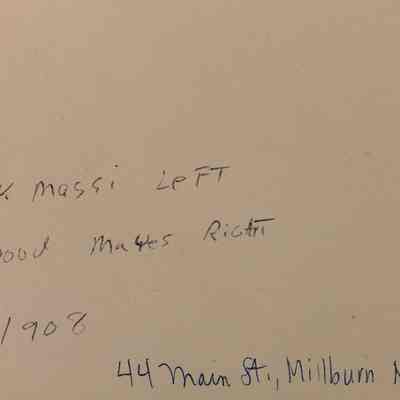 Massi LeFT
Mayes RIGHT
1908
44 Main St., Millburn N